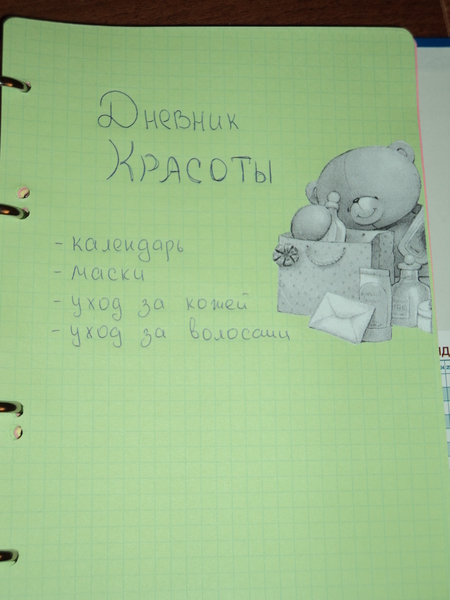 Дневник
Красоты
- календарь
- маски
- уход за кожей
- уход за волосами